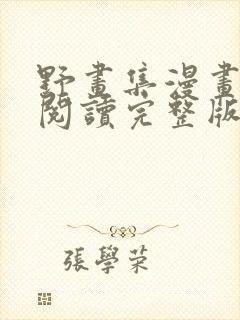 野畫集漫畫
閱讀完整版
張學荣